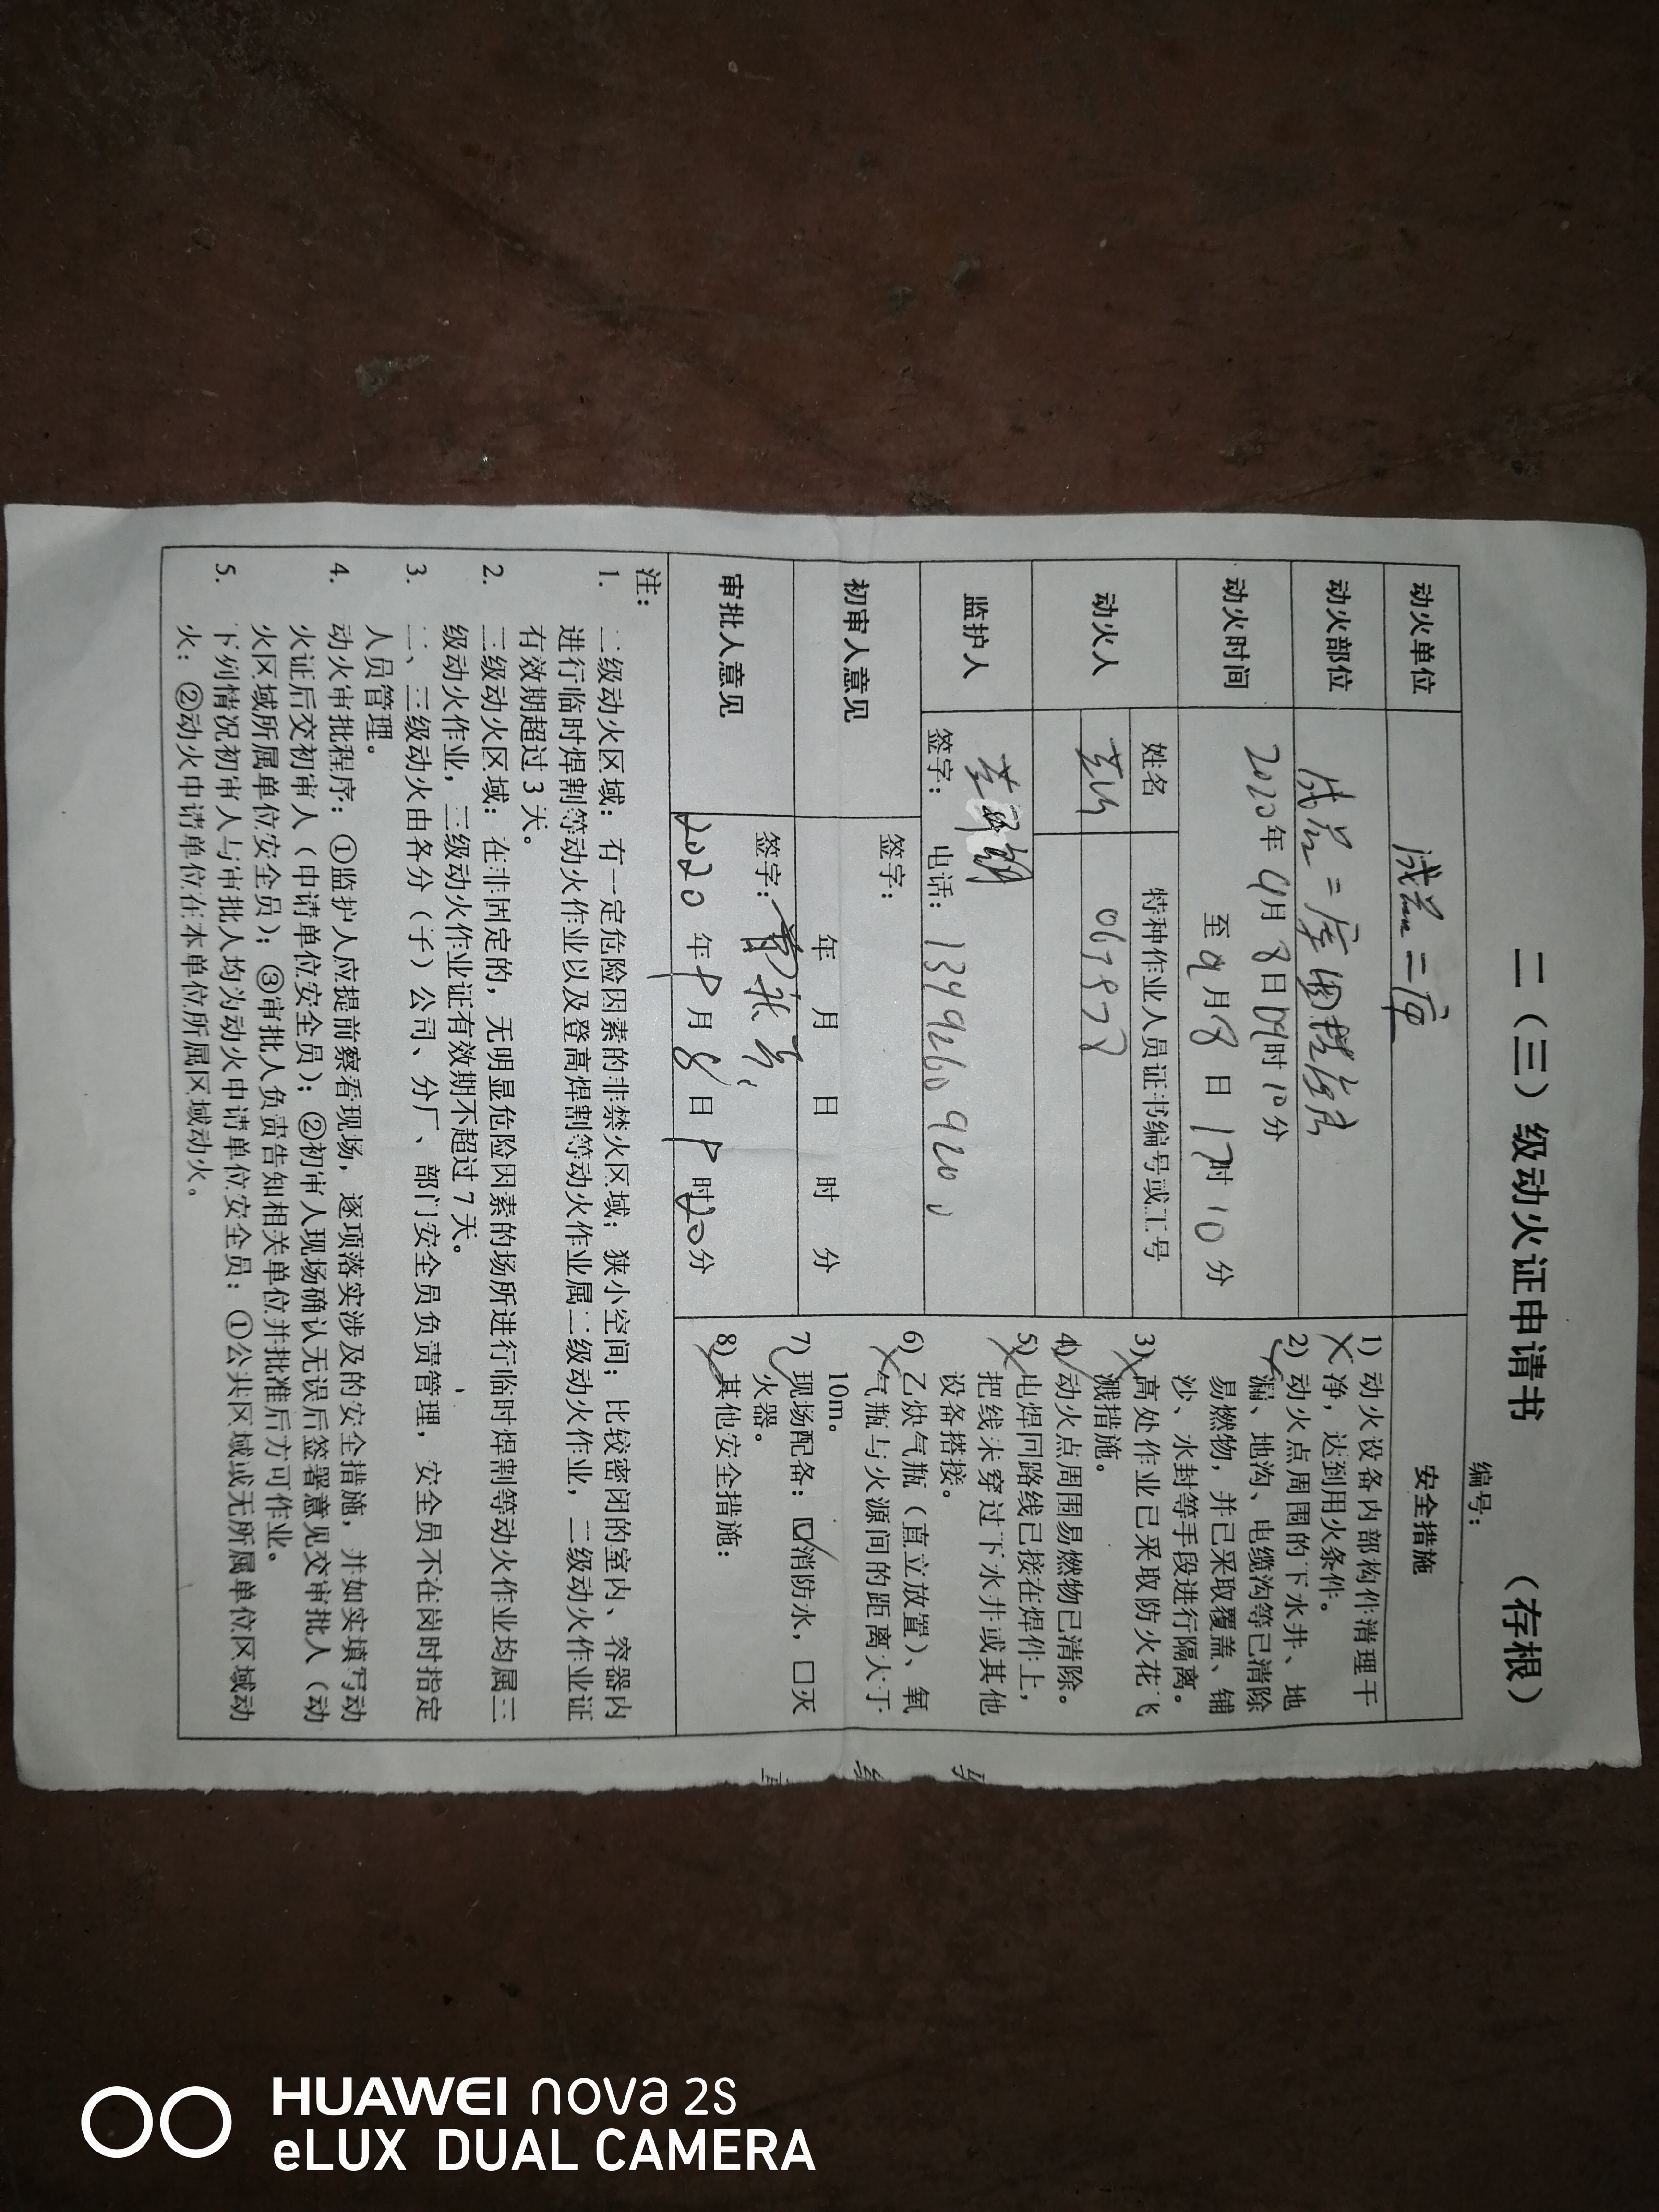 二（三）级动火证申请书 （存根）
编号：
动火单位
成品二库
安全措施
动火部位
成品二库
动火时间
2020年9月8日09时10分
至9月8日17时10分
动火人
姓名
特种作业人员证书编号或工号
监护人
签字：
电话：
初审人意见
签字：
年 月 日 时 分
审批人意见
签字：
2020年9月8日9时20分
1) 动火设备内部构件清理干
净，达到用火条件。
2) 动火点周围的下水井、地
漏、地沟、电缆沟等已清除
易燃物，并已采取覆盖、铺
沙、水封等手段进行隔离。
3) 高处作业已采取防火花飞
溅措施。
4) 动火点周围易燃物已清除。
5) 电焊回路线已接在焊件上，
把线未穿过下水井或其他
设备搭接。
6) 乙炔气瓶（直立放置）、氧
气瓶与火源间的距离大于
10m。
7) 现场配备：☑消防水，□灭
火器。
8) 其他安全措施：
注：
1. 二级动火区域：有一定危险因素的非禁火区域；狭小空间；比较密闭的室内、容器内
进行临时焊割等动火作业以及登高焊割等动火作业属二级动火作业，二级动火作业证
有效期超过3天。
2. 三级动火区域：在非固定的，无明显危险因素的场所进行临时焊割等动火作业均属三
级动火作业，三级动火作业证有效期不超过7天。
3. 二、三级动火由各分（子）公司、分厂、部门安全员负责管理，安全员不在岗时指定
人员管理。
4. 动火审批程序：①监护人应提前察看现场，逐项落实涉及的安全措施，并如实填写动
火证后交初审人（申请单位安全员）；②初审人现场确认无误后签署意见交审批人（动
火区域所属单位安全员）；③审批人负责告知相关单位并批准后方可作业。
5. 下列情况初审人与审批人均为动火申请单位安全员：①公共区域或无所属单位区域动
火；②动火申请单位在本单位所属区域动火。
HUAWEI nova 2S
eLUX DUAL CAMERA